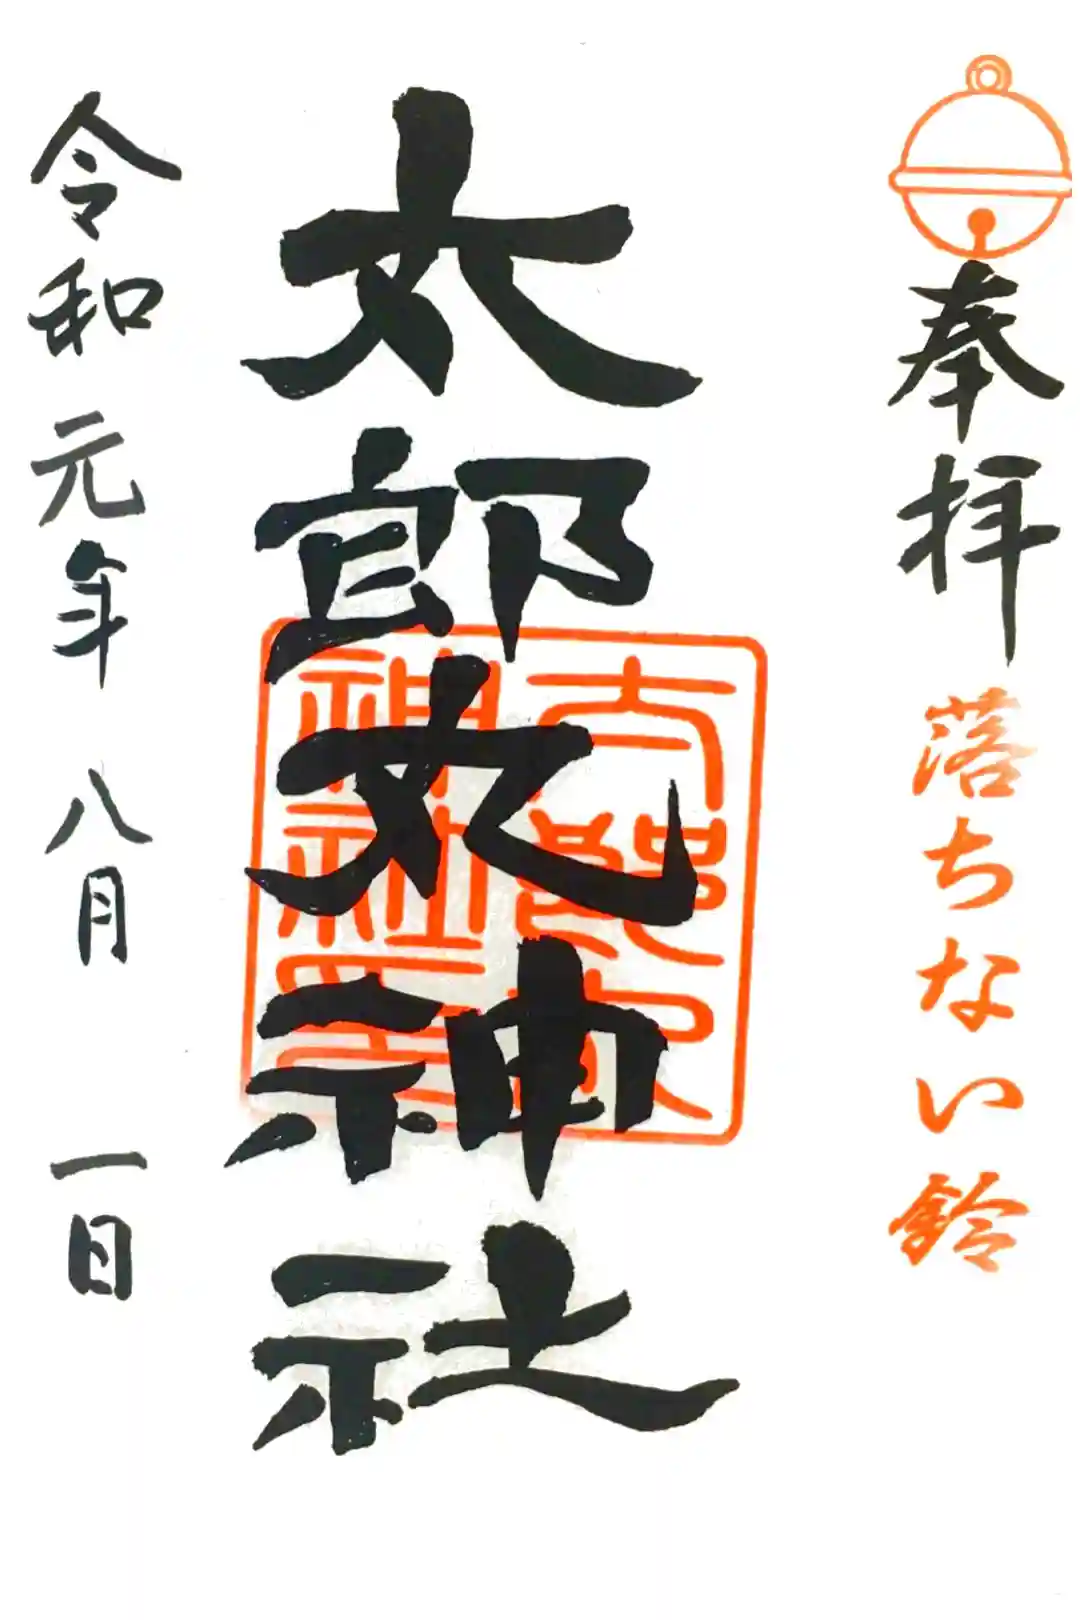 奉拝
落ちない鈴
太郎丸神社
令和元年 八月 一日